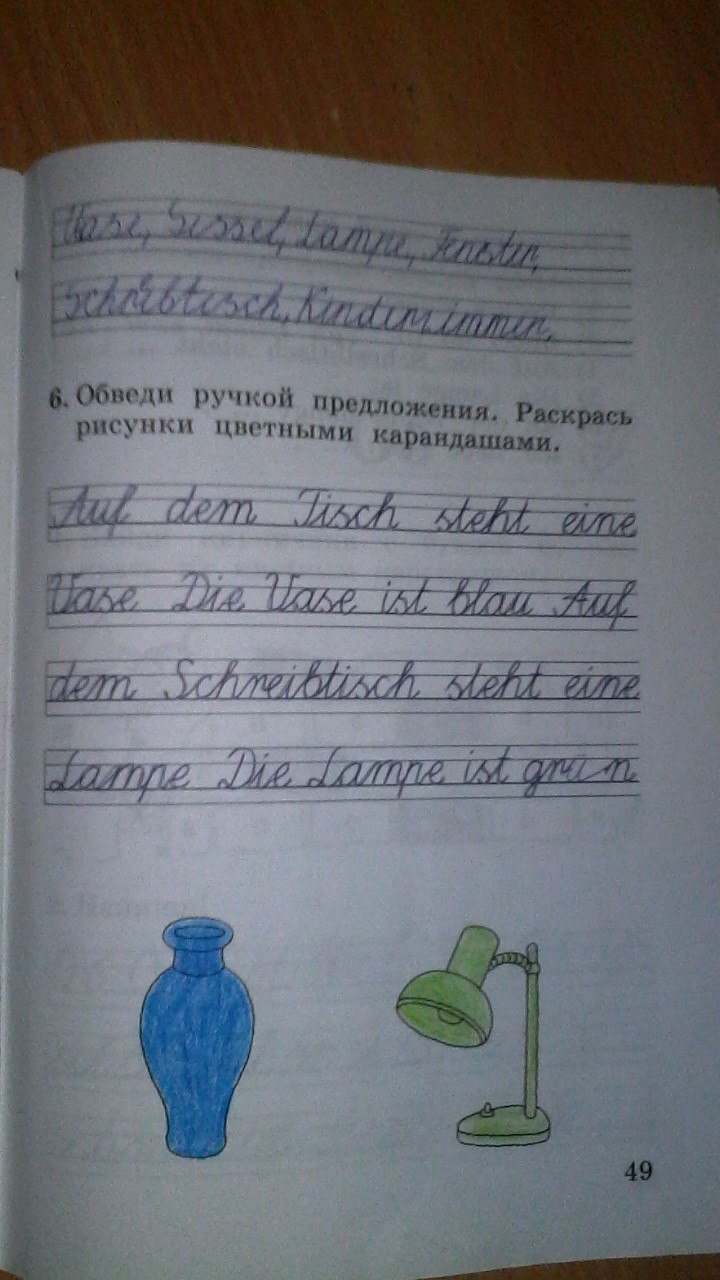 Vase, Sessel, Lampe, Fenster,
Schreibtisch, Kinderzimmer.
6. Обведи ручкой предложения. Раскрась
рисунки цветными карандашами.
Auf dem Tisch steht eine
Vase Die Vase ist blau Auf
dem Schreibtisch steht eine
Lampe Die Lampe ist grün
49